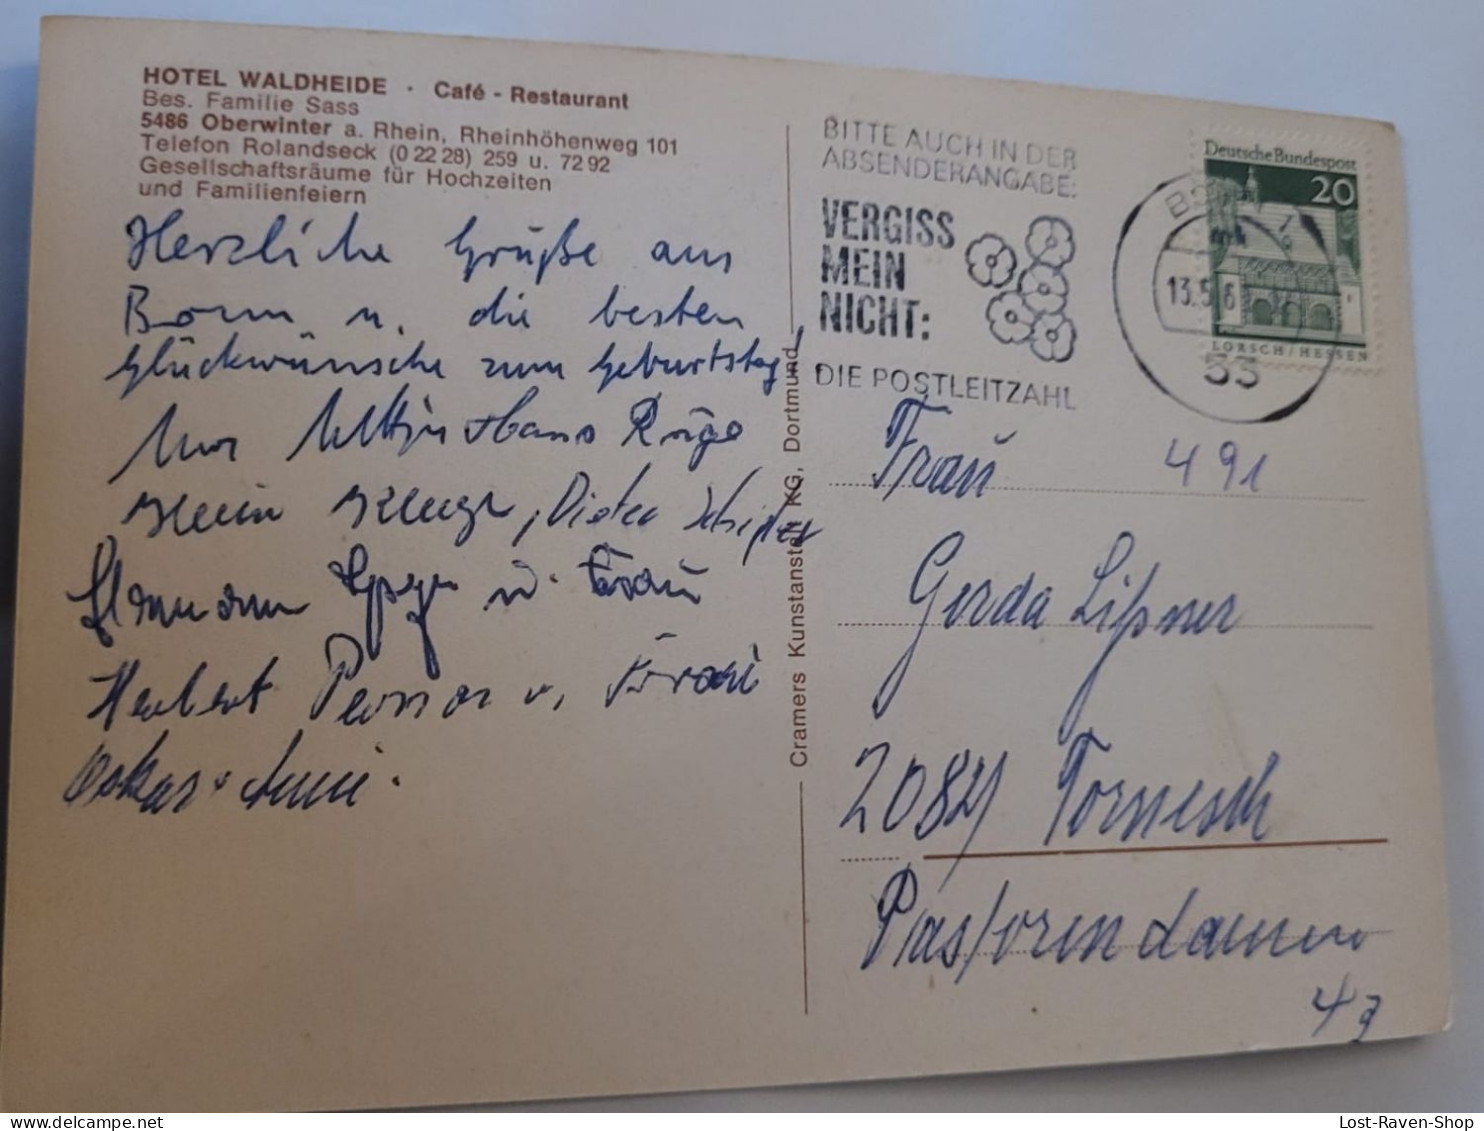 HOTEL WALDHEIDE · Café - Restaurant
Bes. Familie Sass
5486 Oberwinter a. Rhein, Rheinhöhenweg 101
Telefon Rolandseck (0 22 28) 259 u. 72 92
Gesellschaftsräume für Hochzeiten
und Familienfeiern
Herzliche Grüße aus
Bonn u. die besten
Glückwünsche zum Geburtstag!
Hans
Dieter
Hermann u. Frau
Herbert u. Frau
Oskar u.
Cramers Kunstanstalt KG, Dortmund
BITTE AUCH IN DER
ABSENDERANGABE:
VERGISS
MEIN
NICHT:
DIE POSTLEITZAHL
53
Deutsche Bundespost
20
LORSCH/HESSEN
Frau
491
Gerda Lißner
2082 Tornesch
Pastorendamm
Lost-Raven-Shop